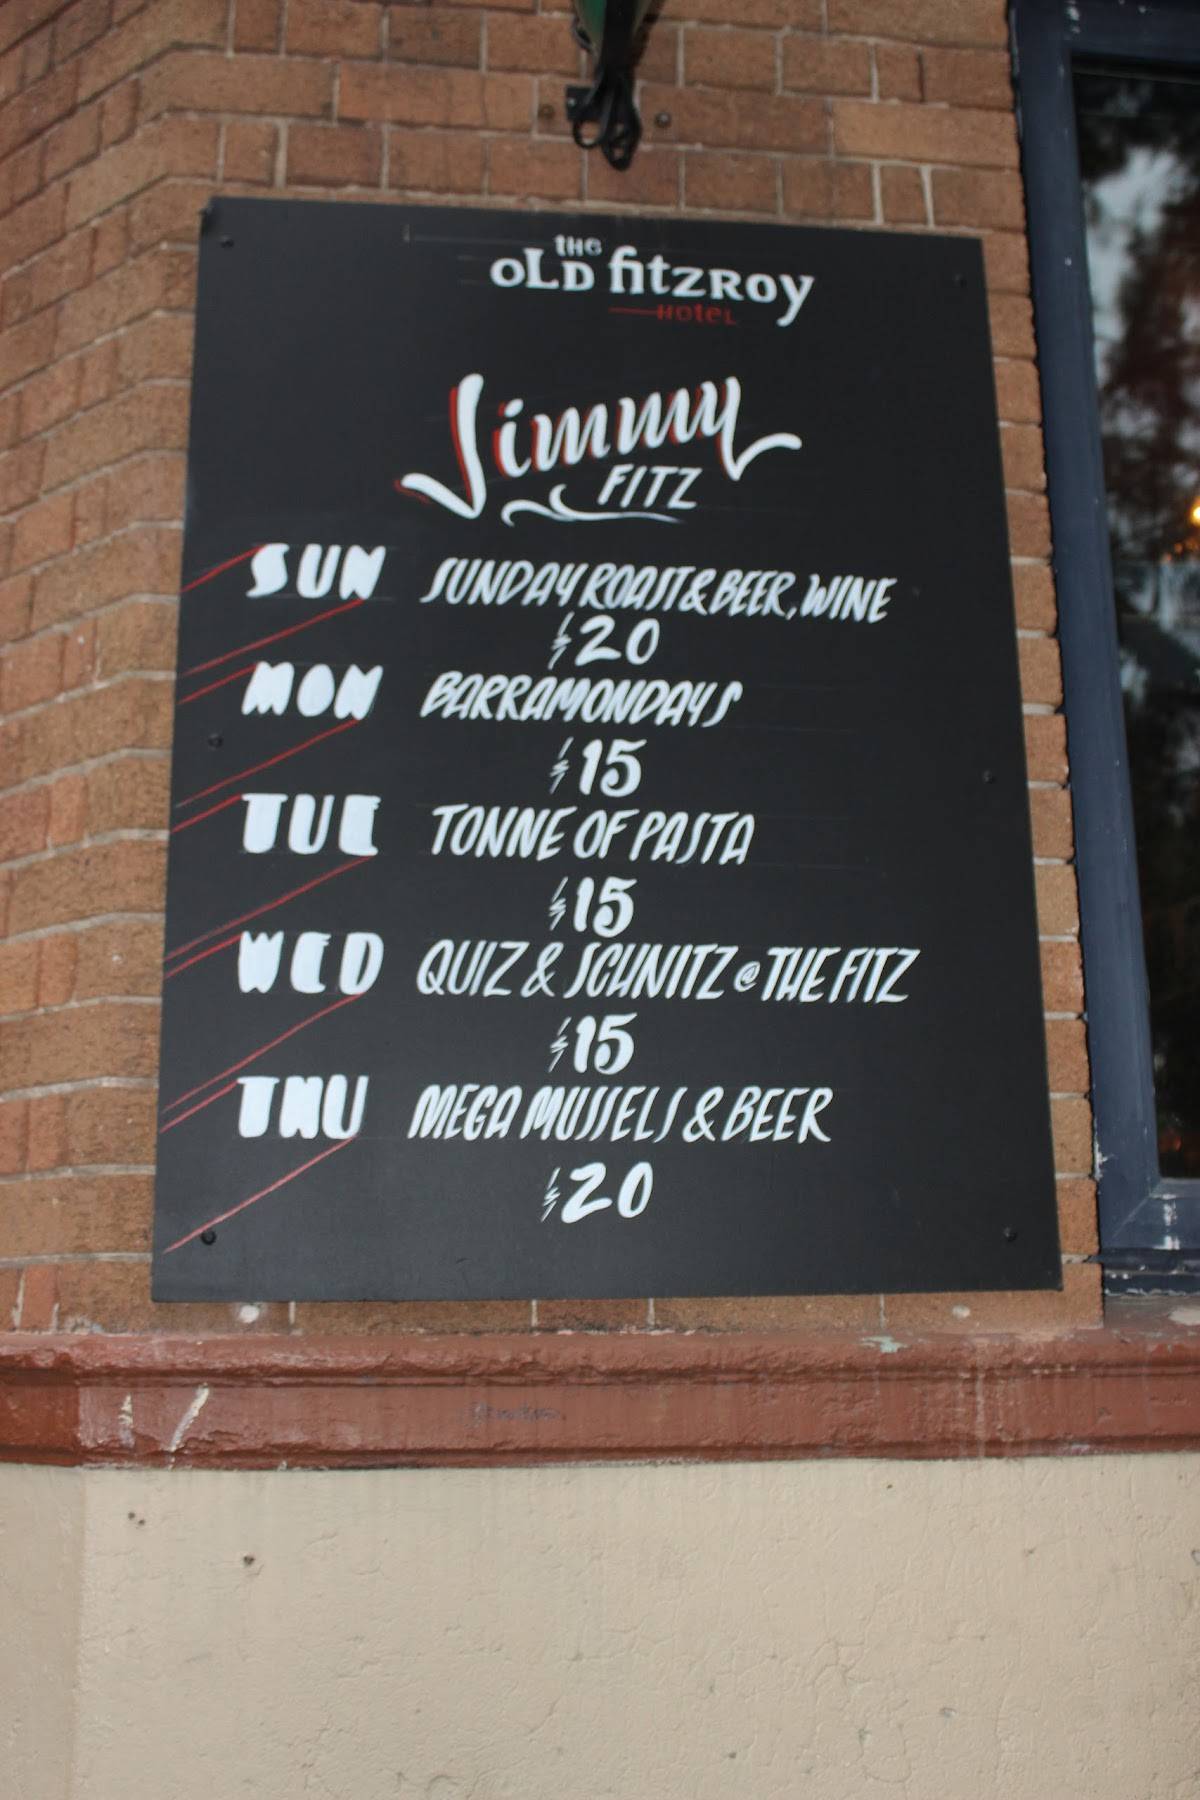 the
OLD fitzRoy
Hotel
Jimmy
FITZ
SUN SUNDAY ROAST & BEER, WINE
$20
MON BARRAMONDAYS
$15
TUE TONNE OF PASTA
$15
WED QUIZ & SCHNITZ @ THE FITZ
$15
THU MEGA MUSSELS & BEER
$20